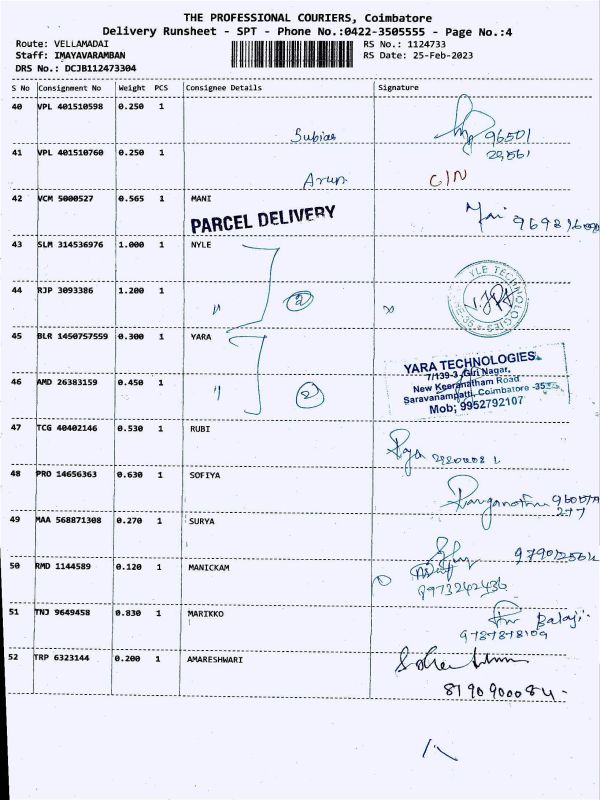 THE PROFESSIONAL COURIERS, Coimbatore
Delivery Runsheet - SPT - Phone No.:0422-3505555 - Page No.:4
Route: VELLAMADAI RS No.: 1124733
Staff: IMAYAVARAMBAN RS Date: 25-Feb-2023
DRS No.: DCJB112473304
S No Consignment No Weight PCS Consignee Details Signature
40 VPL 401510598 0.250 1
Subias 96501
41 VPL 401510760 0.250 1
Arun C/N
42 VCM 5000527 0.565 1 MANI
PARCEL DELIVERY
43 SLM 314536976 1.000 1 NYLE
44 RJP 3093386 1.200 1
" 2
45 BLR 1450757559 0.300 1 YARA
YARA TECHNOLOGIES
7/139-3, Giri Nagar,
New Keeranatham Road
Saravanampatti, Coimbatore -35
Mob; 9952792107
46 AMD 26383159 0.450 1
" 2
47 TCG 40402146 0.530 1 RUBI
48 PRO 14656363 0.630 1 SOFIYA
49 MAA 568871308 0.270 1 SURYA
50 RMD 1144589 0.120 1 MANICKAM
8973242436
51 TNJ 9649458 0.830 1 MARIKKO
Balaji
9787878109
52 TRP 6323144 0.200 1 AMARESHWARI
8190900084